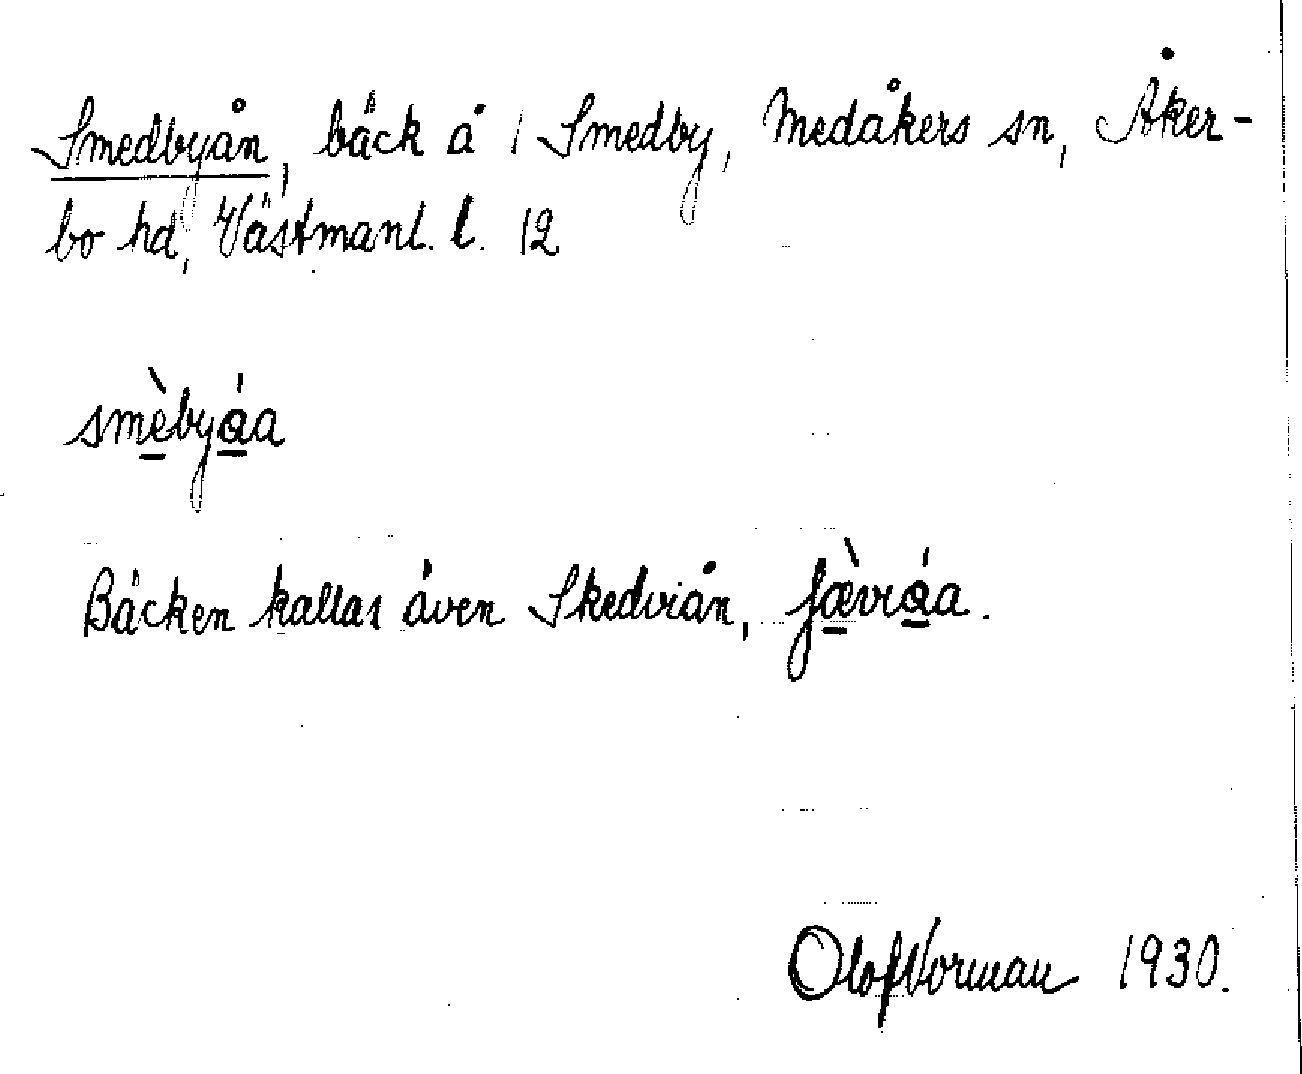 Smedbyån, bäck å 1 Smedby, Medåkers sn, Åker-
bo hd, Västmanl. l. 12
smèbyáa
Bäcken kallas även Skedviån, ʃæ̀vráa.
Olof Norman 1930.